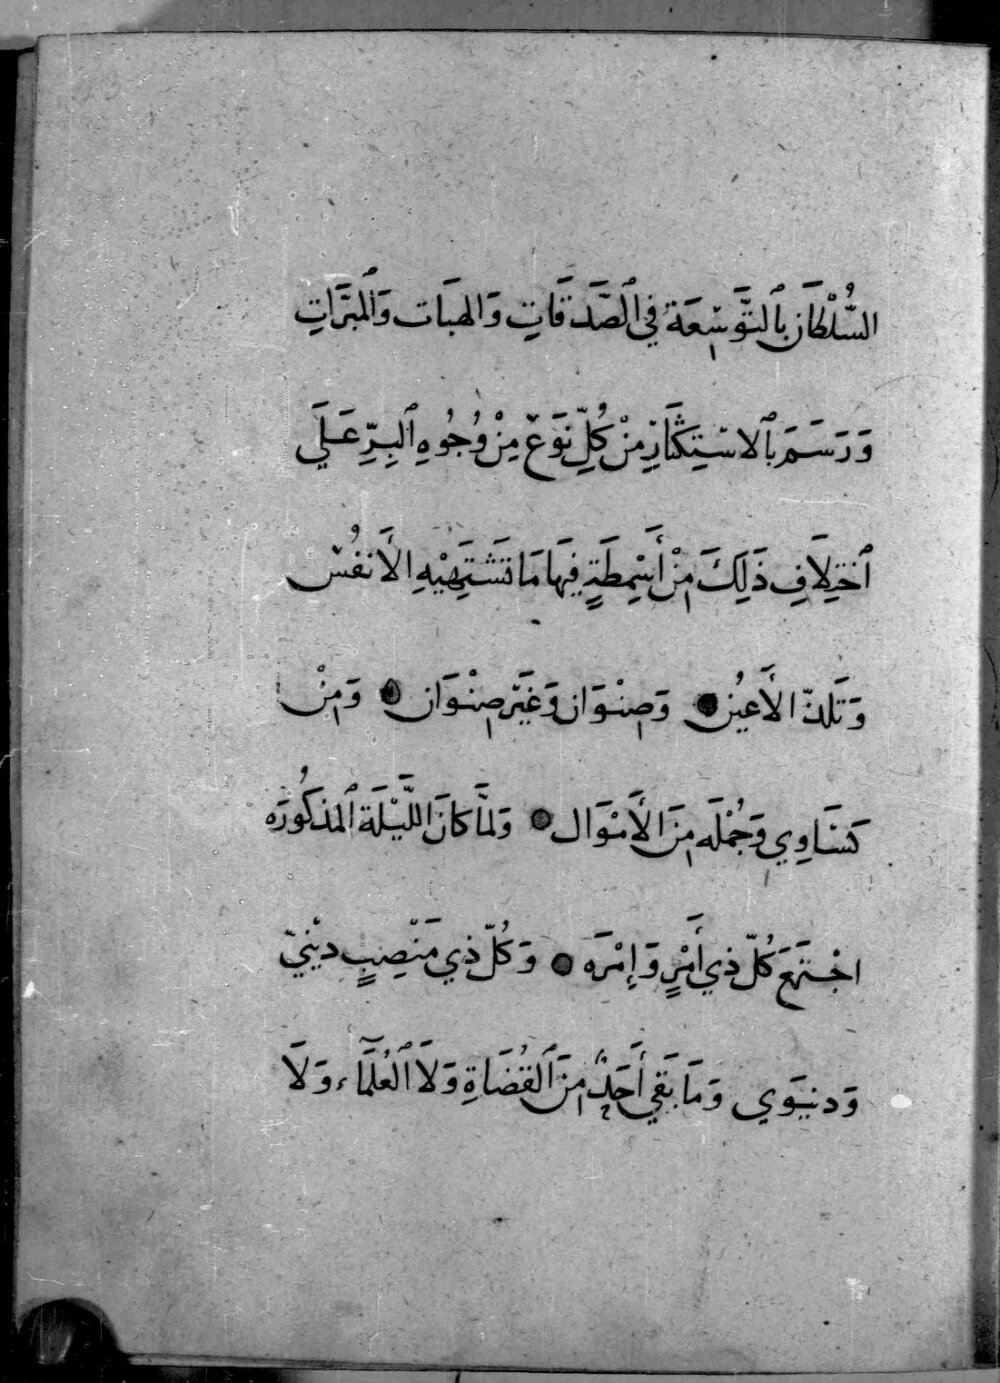 السُّلْطَان بِٱلتَّوَسِعَةِ فِي ٱلصَّدَقَاتِ وَالهِبَات وَٱلمَبَرَّاتِ
وَرَسَمَ بِٱلاسْتِكْثَارِ مِنْ كُلِّ نَوْعٍ مِنْ وُجُوهِ ٱلبِرِّ عَلَي
ٱخْتِلَافِ ذَلِكَ مِنْ أَسْمِطَةٍ فِيهَا مَا تَشْتَهِيْهِ الأَنفُسْ
وَتَلَذّ الأَعْيُن وَصِنْوَان وَغَيْر صِنْوَان وَمِنْ
كَسَاوِي وَجُمْلَه مِنَ الأَمْوَال وَلَمَّا كَانَ اللَّيْلَة ٱلمَذكُورَه
اجْتَمَعَ كُلّ ذِي أَمْرٍ وَإِمْرَه وَكُلّ ذِي مَنْصِبٍ دِيْنِيّ
وَدنيَوي وَمَا بَقِي أَحَدٌ مِنَ ٱلقُضَاةِ وَلَا ٱلعُلَمَّاء وَلَا